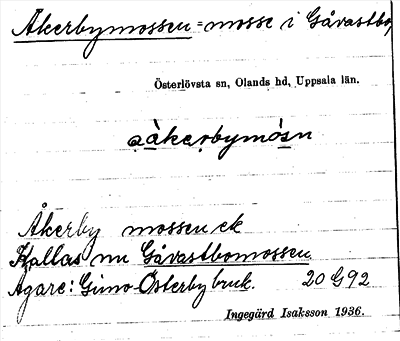 Åkerbymossen = mosse i Gåvastbo,
Österlövsta sn, Olands hd, Uppsala län.
åkerbymósn
Åkerby mossen ek
Kallas nu Gåvastbomossen
Ägare: Gimo-Österby bruk. 20 G 92
Ingegärd Isaksson 1936.